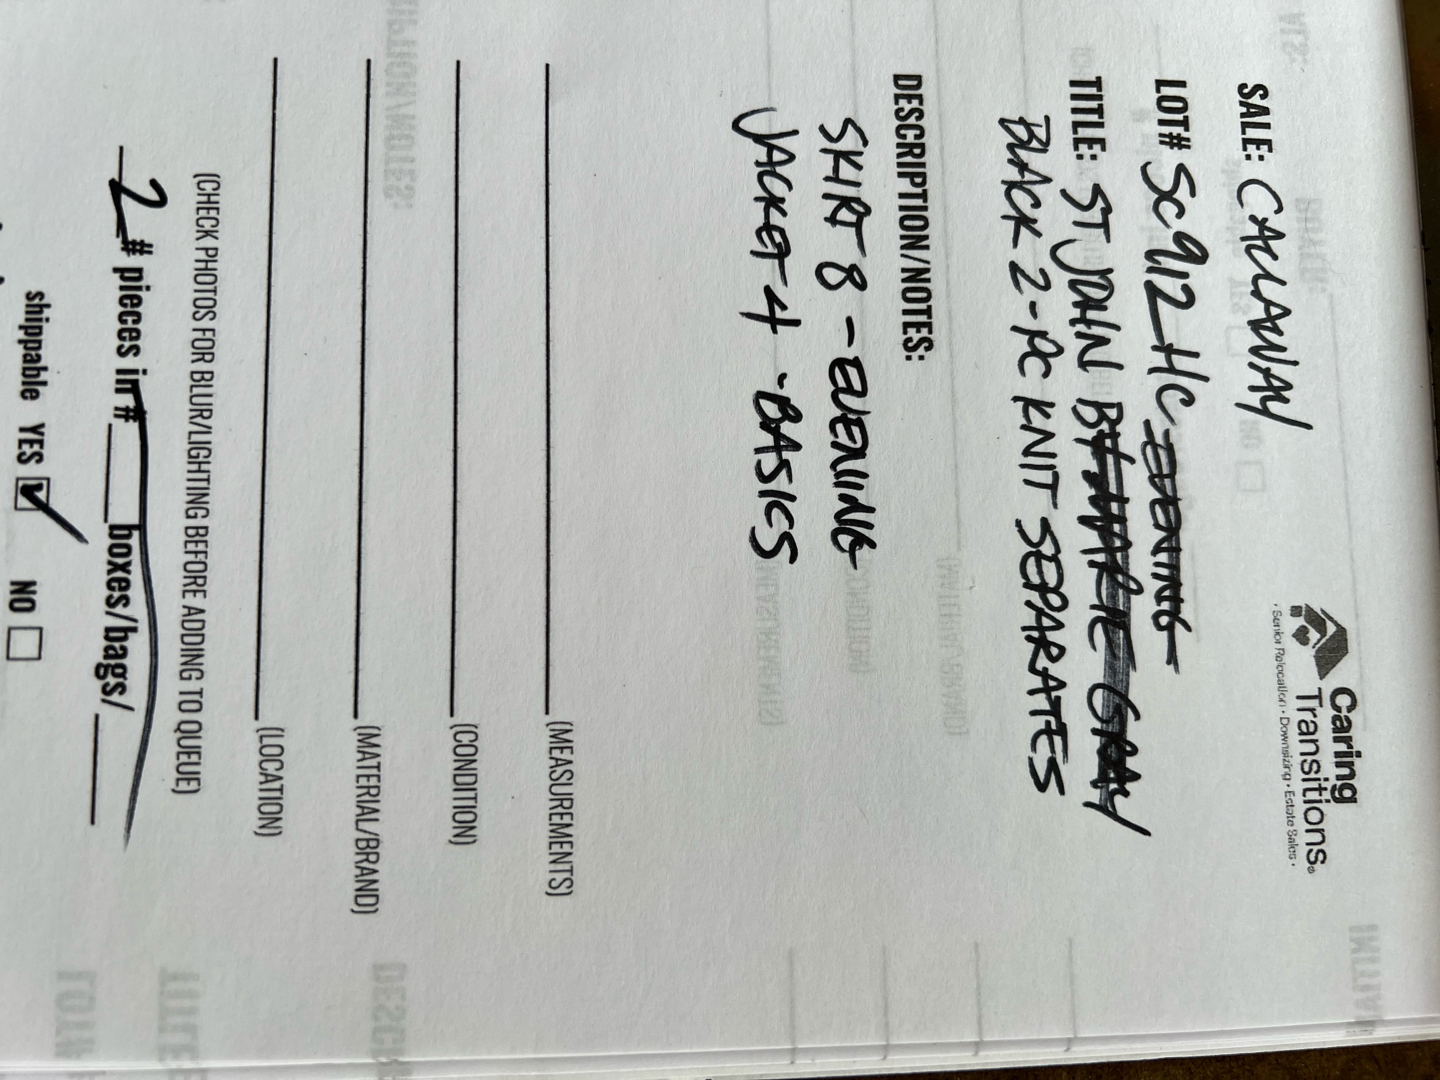 Caring
Transitions®
• Senior Relocation • Downsizing • Estate Sales •
SALE: CALLAWAY
LOT# SC912HC EVENING
TITLE: ST JOHN BY MARIE GRAY
BLACK 2-PC KNIT SEPARATES
DESCRIPTION/NOTES:
SKIRT 8 - EVENING
JACKET 4 - BASICS
(MEASUREMENTS)
(CONDITION)
(MATERIAL/BRAND)
(LOCATION)
(CHECK PHOTOS FOR BLUR/LIGHTING BEFORE ADDING TO QUEUE)
2 # pieces in # boxes/bags/
shippable YES ✓ NO